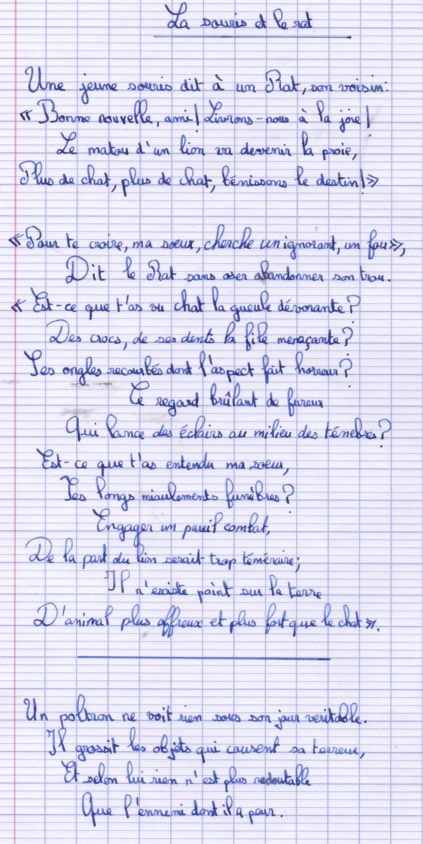 La souris et le rat
Une jeune souris dit à un Rat, son voisin:
« Bonne nouvelle, ami! Livrons-nous à la joie!
Le matou d'un lion va devenir la proie,
Plus de chat, plus de chat, bénissons le destin!»
« Pour te croire, ma soeur, cherche un ignorant, un fou»,
Dit le Rat sans oser abandonner son trou.
« Est-ce que t'as vu chat la gueule dévorante?
Des crocs, de ses dents la file menaçante?
Ses ongles recourbés dont l'aspect fait horreur?
Ce regard brûlant de fureur
Qui lance des éclairs au milieu des ténèbres?
Est-ce que t'as entendu ma soeur,
Ses longs miaulements funèbres?
Engager un pareil combat,
De la part du lion serait trop téméraire;
Il n'existe point sur la terre
D'animal plus affreux et plus fort que le chat».
Un poltron ne voit rien sous son jour veritable.
Il grossit les objets qui causent sa terreur,
Et selon lui rien n'est plus redoutable
Que l'ennemi dont il a peur.